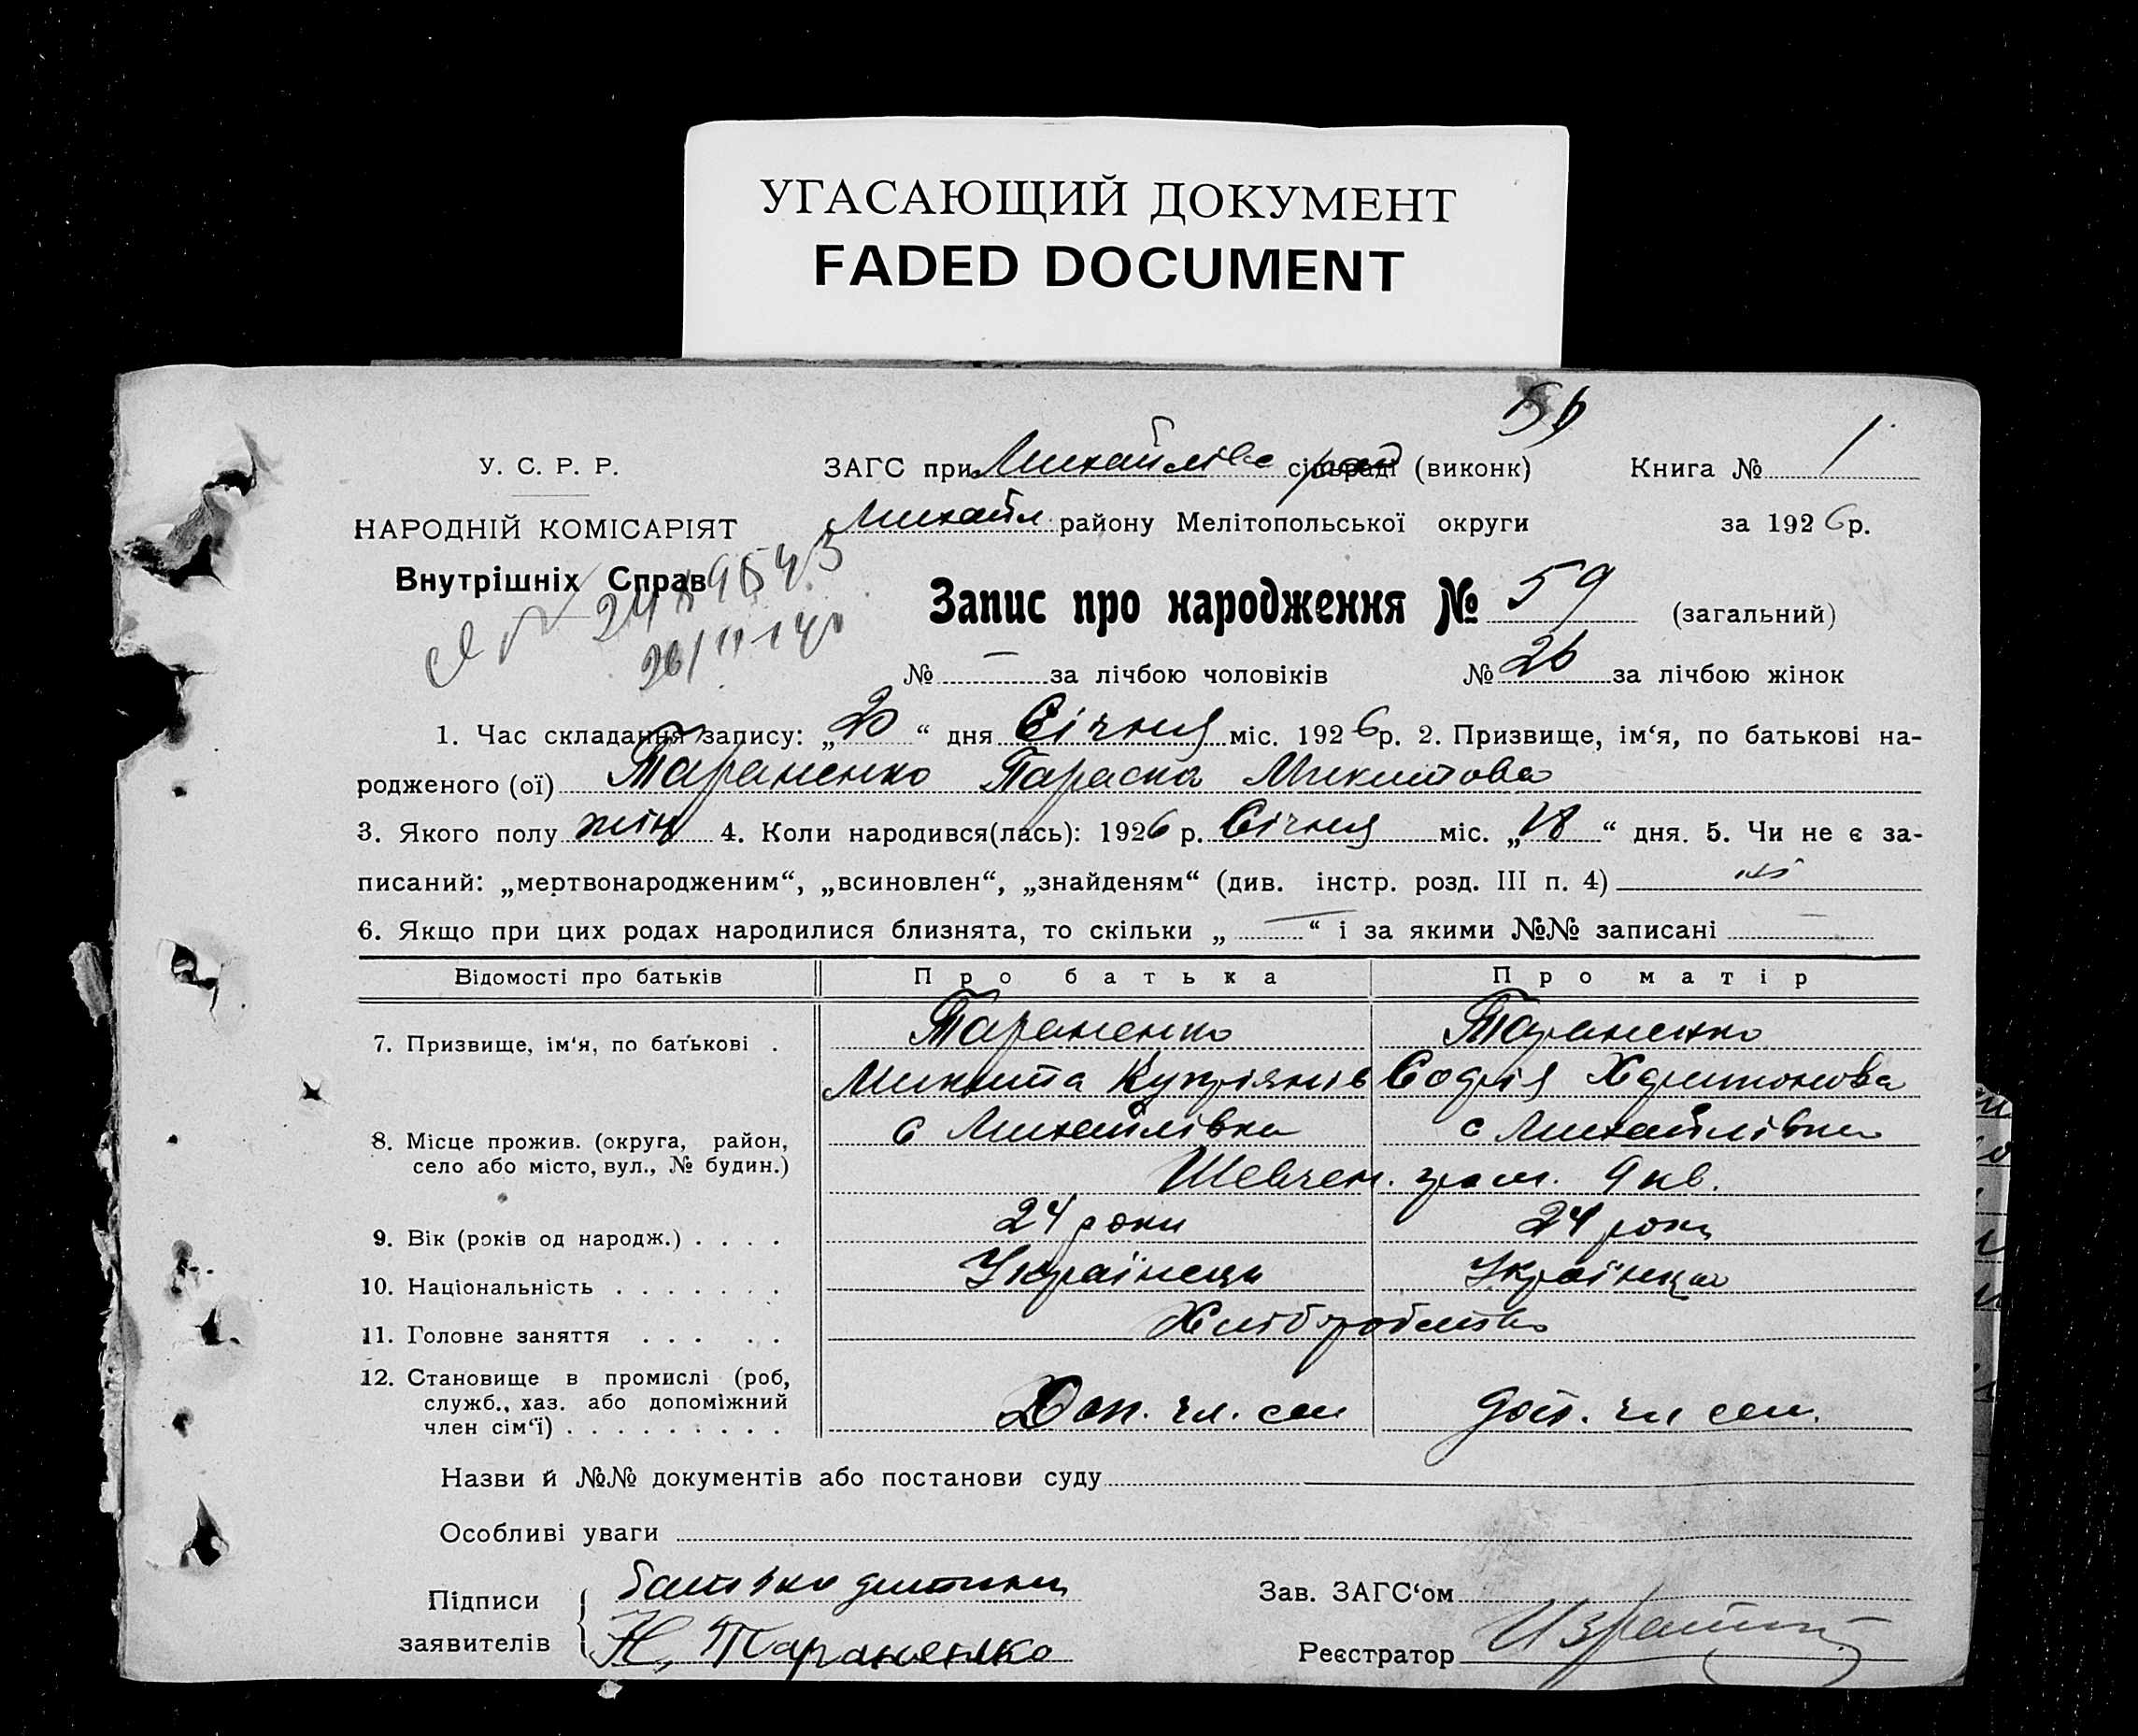 УГАСАЮЩИЙ ДОКУМЕНТ
FADED DOCUMENT
У. С. Р. Р.
НАРОДНІЙ КОМІСАРІЯТ
Внутрішніх Справ
ЗАГС при Михайлівс сільраді (виконк) Книга № 1
Михайл. району Мелітопольської округи за 1926 р.
Запис про народження № 59 (загальний)
№ — за лічбою чоловіків № 26 за лічбою жінок
1. Час складання запису: „20“ дня Січня міс. 1926 р. 2. Призвище, ім‘я, по батькові на-
родженого (ої) Тараненко Параска Микитова
3. Якого полу жін 4. Коли народився(лась): 1926 р. Січня міс. „18“ дня. 5. Чи не є за-
писаний: „мертвонародженим“, „всиновлен“, „знайденям“ (див. інстр. розд. III п. 4) ні
6. Якщо при цих родах народилися близнята, то скільки „—“ і за якими №№ записані —
Відомості про батьків Про батька Про матір
7. Призвище, ім‘я, по батькові . Тараненко Тараненко
Микита Купріянів Софія Харитонова
8. Місце прожив. (округа, район, село або місто, вул., № будин.) с Михайлівка с Михайлівка
Шевчен. гром. 9 кв.
9. Вік (років од народж.) . . . . 24 роки 24 роки
10. Національність . . . . . . . Українець Українка
11. Головне заняття . . . . . Хліборобство
12. Становище в промислі (роб, служб., хаз. або допоміжний член сім‘ї) . . . . . . . . . Доп. чл. сем доп. чл сем.
Назви й №№ документів або постанови суду
Особливі уваги
Підписи заявителів батько дитини
Н. Тараненко
Зав. ЗАГС‘ом
Реєстратор